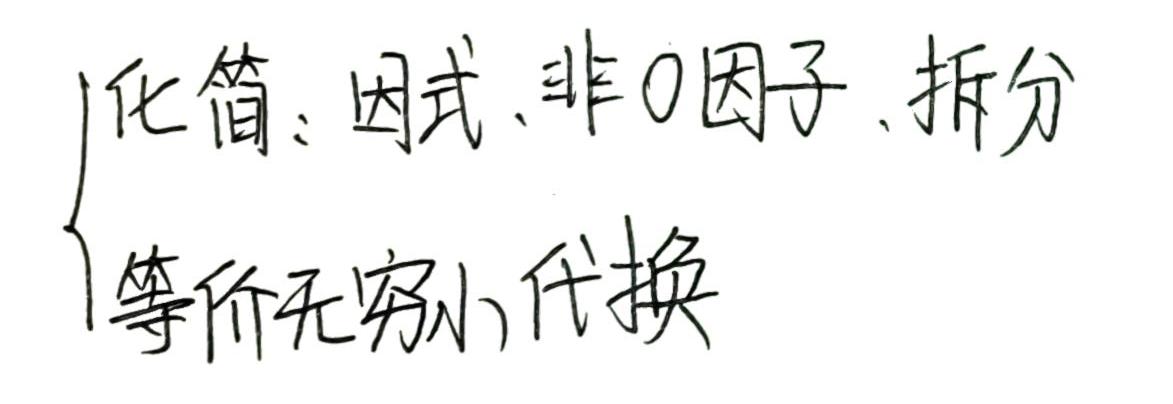 化简：因式、非0因子、拆分
等价无穷小代换